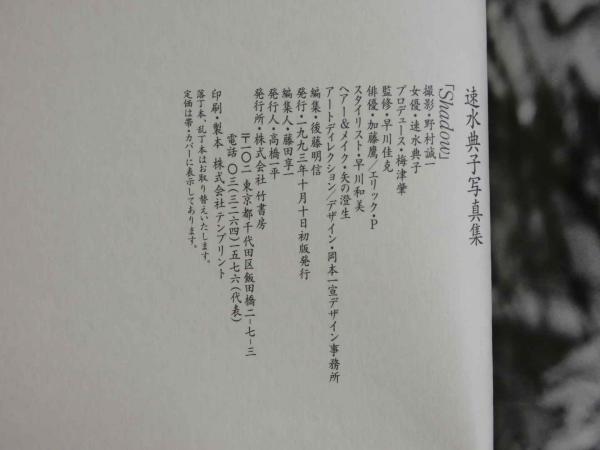 速水典子写真集
「Shadow」
撮影・野村誠一
女優・速水典子
プロデュース・梅津肇
監修・早川佳克
俳優・加藤鷹/エリック・P
スタイリスト・早川和美
ヘアー&メイク・矢の澄生
アートディレクション/デザイン・岡本一宣デザイン事務所
編集・後藤明信
発行・一九九三年十月十日初版発行
編集人・藤田享一
発行人・高橋一平
発行所・株式会社 竹書房
〒一〇二 東京都千代田区飯田橋二-七-三
電話 〇三(三二六四)一五七六(代表)
印刷・製本 株式会社テンプリント
落丁本、乱丁本はお取り替えいたします。
定価は帯・カバーに表示してあります。